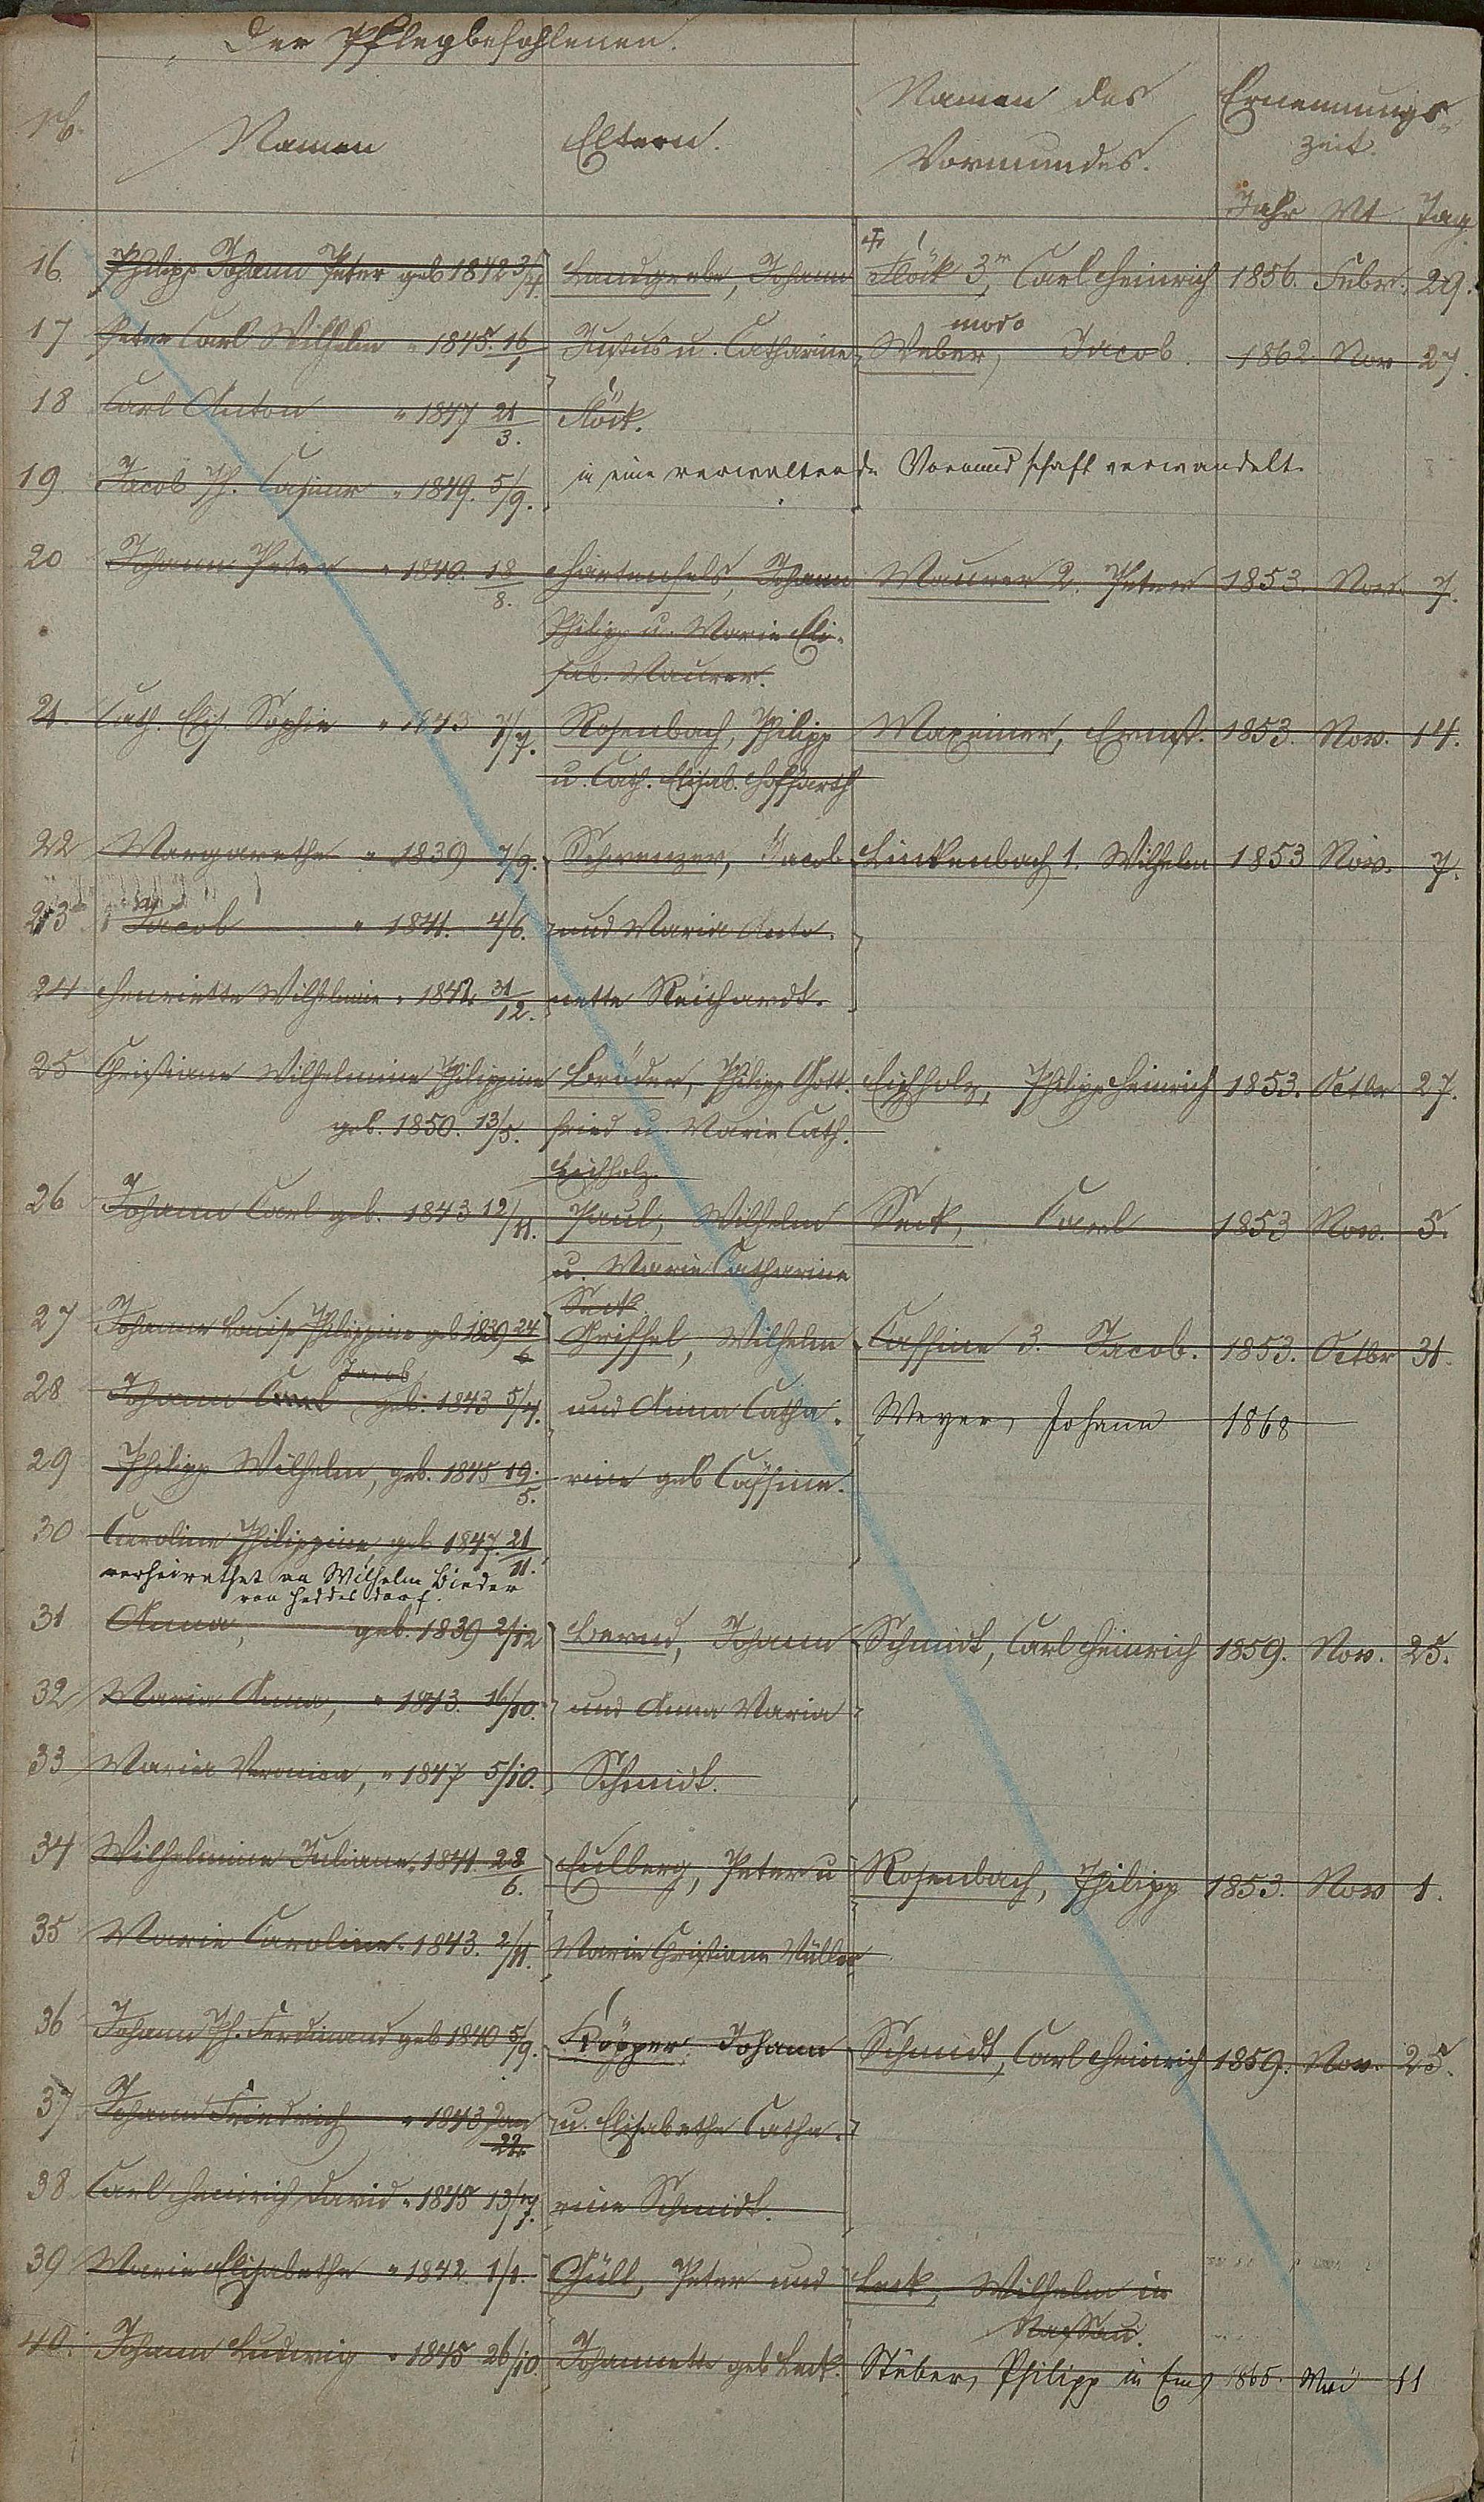 Der Pflegbefohlenen.
№. Namen Eltern. Namen des Vormundes. Ernennungs-zeit.
Jahr Mt Tag
16. Philipp Johann Peter geb 1842 3/4. Landgrebe, Johann Flöck 3r, Carl Heinrich 1856. Febr. 29.
modo
17 Peter Carl Wilhelm " 1845. 16/1 Justus u. Catharine Weber, Jacob. 1862 Nov 27.
18 Carl Anton " 1847 21/3. Flöck.
19. Jacob Ph. Casimir " 1849. 5/9. in eine verwaltende Vormundschaft verwandelt.
20 Johann Peter " 1840. 18/8. Hartenfels, Johann Maurer 2. Peter 1853. Nov. 7.
Philipp u. Marie Eli-
sab. Maurer.
21. Cath. Elis. Sophie " 1843 7/7. Rosenbach, Philipp Maxeiner, Ernst. 1853. Nov. 14.
u. Cath. Elisab. Hoffarth
22 Margarethe " 1839 7/9. Schwenzer, Jacob Linkenbach 1. Wilhelm 1853 Nov. 7.
23 Jacob " 1841. 4/6. und Maria Anto-
24 Henriette Wilhelmine " 1842 31/12. nette Reichardt.
25 Christiane Wilhelmine Philippine Bruder, Philipp Gott- Eichholz, Philipp Heinrich 1853. Octbr 27.
geb. 1850. 13/5. fried u. Marie Cath.
Eichholz.
26 Johann Carl geb. 1843 12/11. Paul, Wilhelm Seck, Carl 1853 Nov. 5.
u. Marie Catharine
Seck
27 Johanne Louise Philippine geb 1839 24/6 Griffel, Wilhelm Cassine 3. Jacob. 1853. Octbr 31.
Jacob
28 Johann Carl geb. 1843 5/4. und Anna Catha- Meyer, Johann 1868
29 Philipp Wilhelm, geb. 1845 19./5. rine geb Cassine.
30 Caroline Philippine geb 1847. 21/11.
verheirathet an Wilhelm Bieder
von Heddesdorf.
31 Anna, geb. 1839 2/12 Bernd, Johann Schmidt, Carl Heinrich 1859. Nov. 25.
32 Maria Anna, " 1843. 16/10. und Anna Maria
33 Maria Veronica, " 1847 5/10. Schmidt.
34 Wilhelmine Juliane " 1841. 28/6. Eulberg, Peter u Rosenbach, Philipp 1853. Nov 1.
35 Marie Caroline " 1843. 2/11. Marie Christiane Müller
36 Johann Ph. Ferdinand geb 1840 5/9. Küpper, Johann Schmidt, Carl Heinrich 1859. Nov. 25.
37 Johann Friedrich " 1843 Jan 22. u. Elisabethe Catha-
38 Carl Heinrich David " 1845 13/7. rine Schmidt.
39 Marie Elisabethe " 1842 1/1. Güll, Peter und Leck, Wilhelm in
Nassau.
40. Johann Ludwig " 1845 26/10. Johannette geb Leck. Stüber, Philipp in Ems 1865. Mai 11